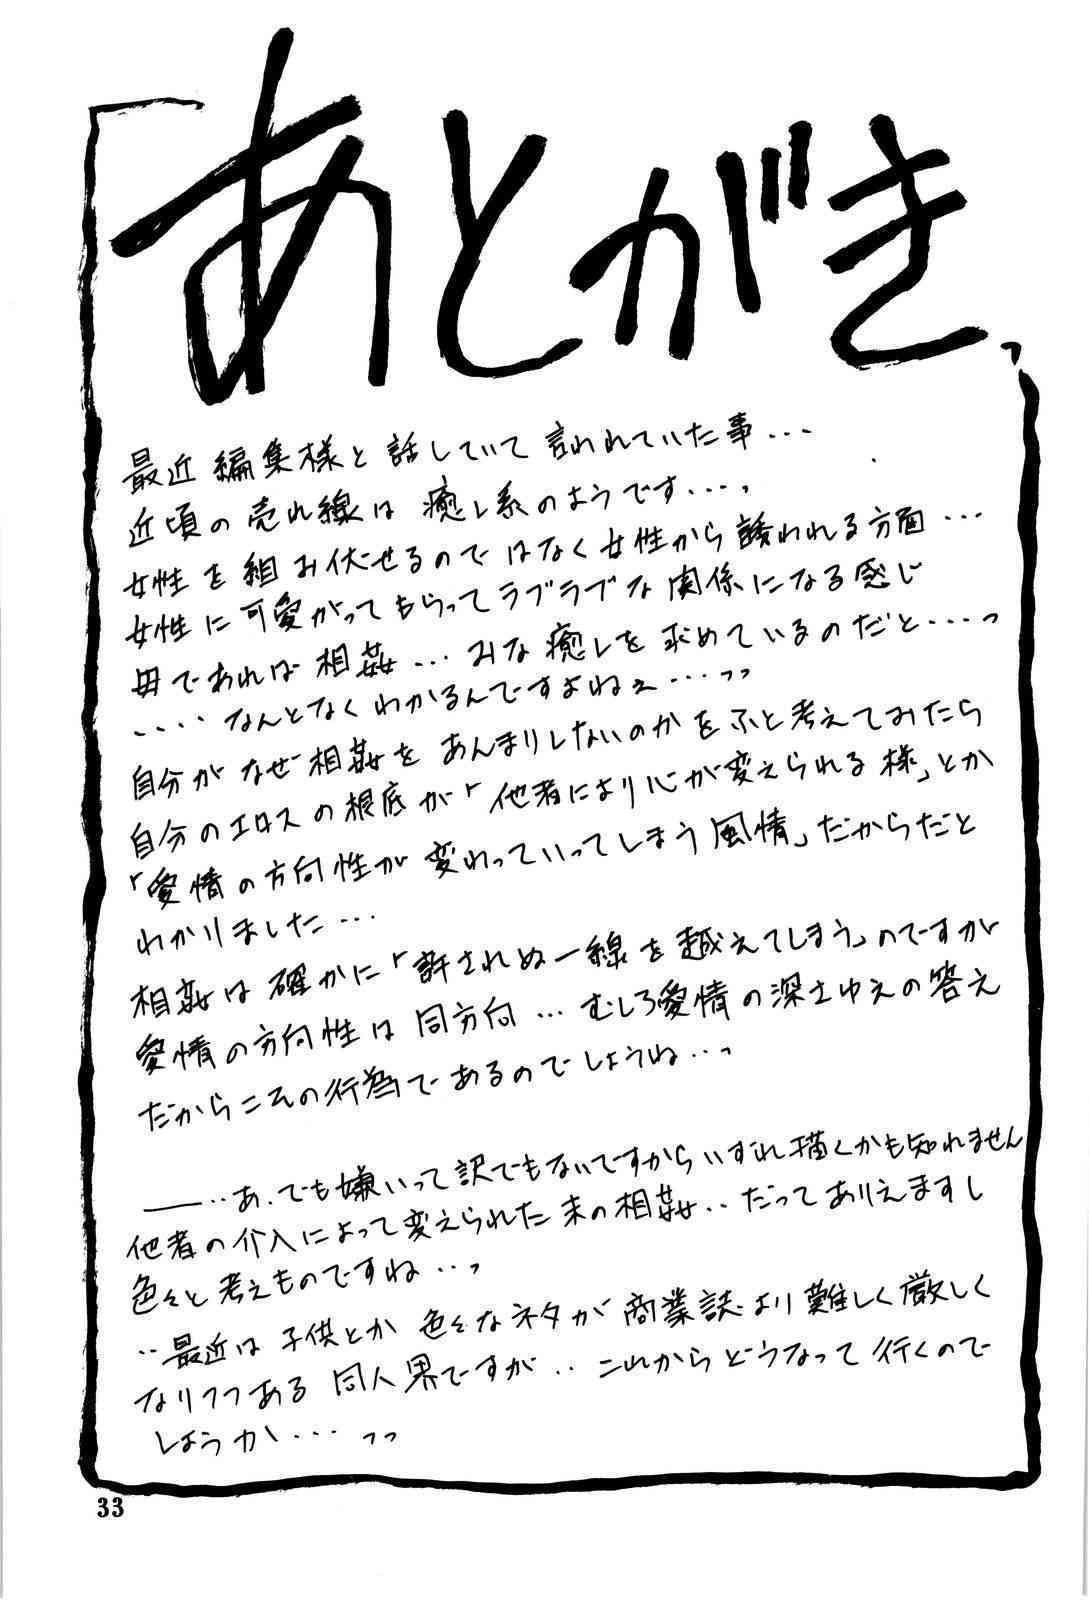 「あとがき」
最近編集様と話していて言われていた事・・・
近頃の売れ線は癒し系のようです・・・っ
女性を組み伏せるのではなく女性から誘われる方面・・・
女性に可愛がってもらってラブラブな関係になる感じ
母であれば相姦・・・みな癒しを求めているのだと・・・っ
・・・・なんとなくわかるんですよねぇ・・・っっ
自分がなぜ相姦をあんまりしないのかをふと考えてみたら
自分のエロスの根底が「他者により心が変えられる様」とか
「愛情の方向性が変わっていってしまう風情」だからだと
わかりました・・・
相姦は確かに「許されぬ一線を越えてしまう」のですが
愛情の方向性は同方向・・・むしろ愛情の深さゆえの答え
だからこその行為であるのでしょうね・・っ
――・・あ、でも嫌いって訳でもないですからいずれ描くかも知れません
他者の介入によって変えられた末の相姦・・だってありえますし
色々と考えものですね・・っ
・・最近は子供とか色々なネタが商業誌より難しく厳しく
なりつつある同人界ですが・・これからどうなって行くので
しょうか・・・っっ
33